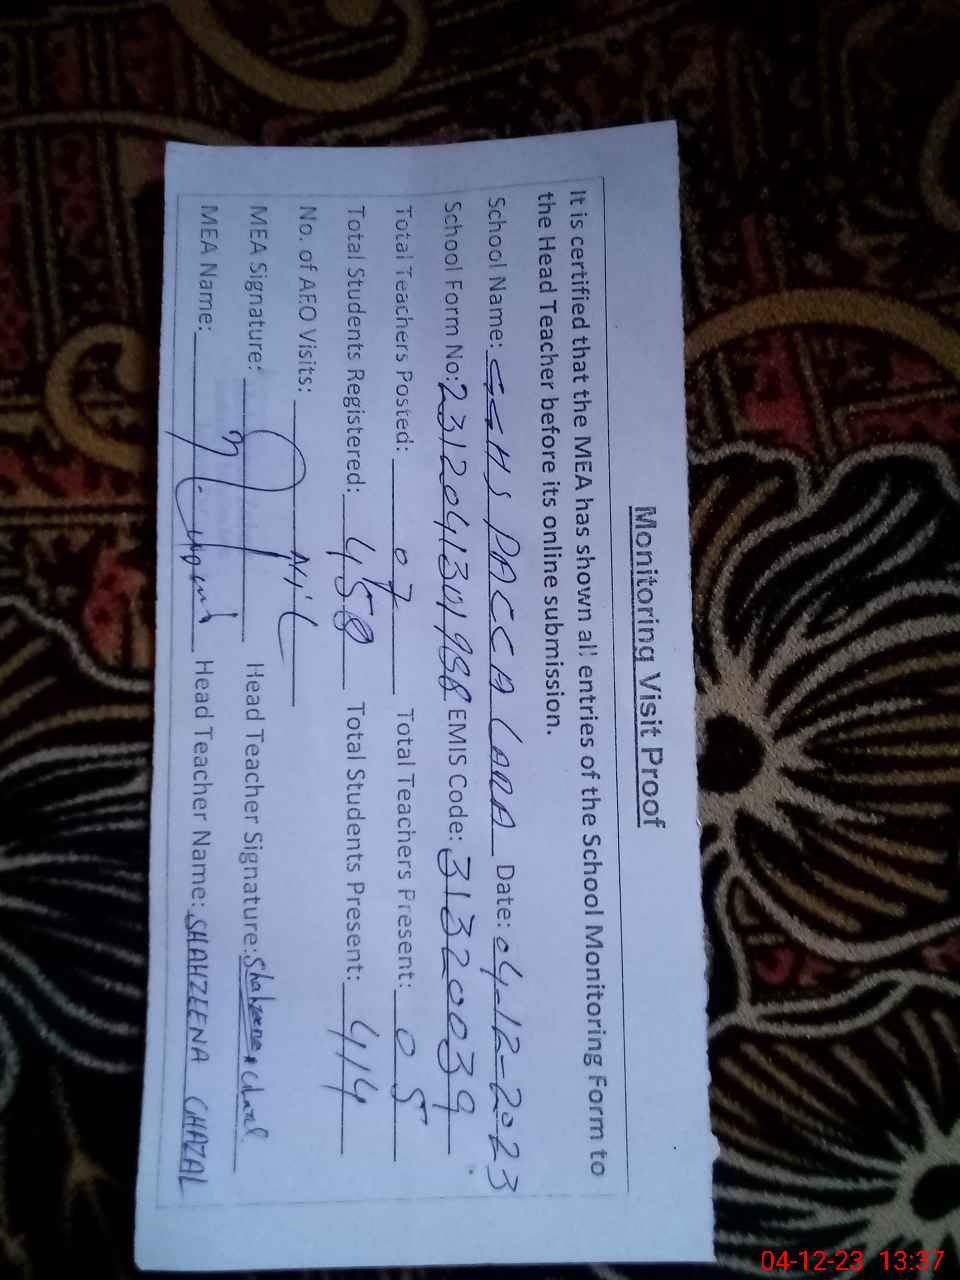 Monitoring Visit Proof
It is certified that the MEA has shown all entries of the School Monitoring Form to
the Head Teacher before its online submission.
School Name: GGHS PACCA LARA Date: 04-12-2023
School Form No: 231204134988 EMIS Code: 31320039
Total Teachers Posted: 07 Total Teachers Present: 05
Total Students Registered: 458 Total Students Present: 414
No. of AEO Visits: Nil
MEA Signature: Head Teacher Signature:
MEA Name: Head Teacher Name: SHAHZEENA GHAZAL
04-12-23 13:37